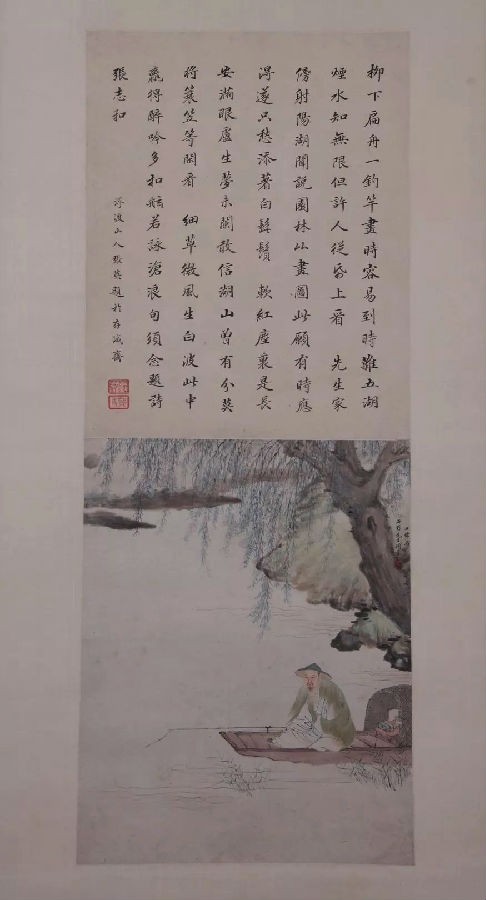 柳下扁舟一釣竿畫時容易到時難五湖
煙水知無限但許人從卷上看　先生家
傍射陽湖聞說園林入畫圖此願有時應
得遂只愁添著白髭鬚　軟紅塵裏是長
安滿眼盧生夢未闌散信湖山曾有分莫
將蓑笠等閑看　細草微風生白波此中
贏得醉吟多扣舷若詠滄浪句須念題詩
張志和
淨波山人
題於存誠齋